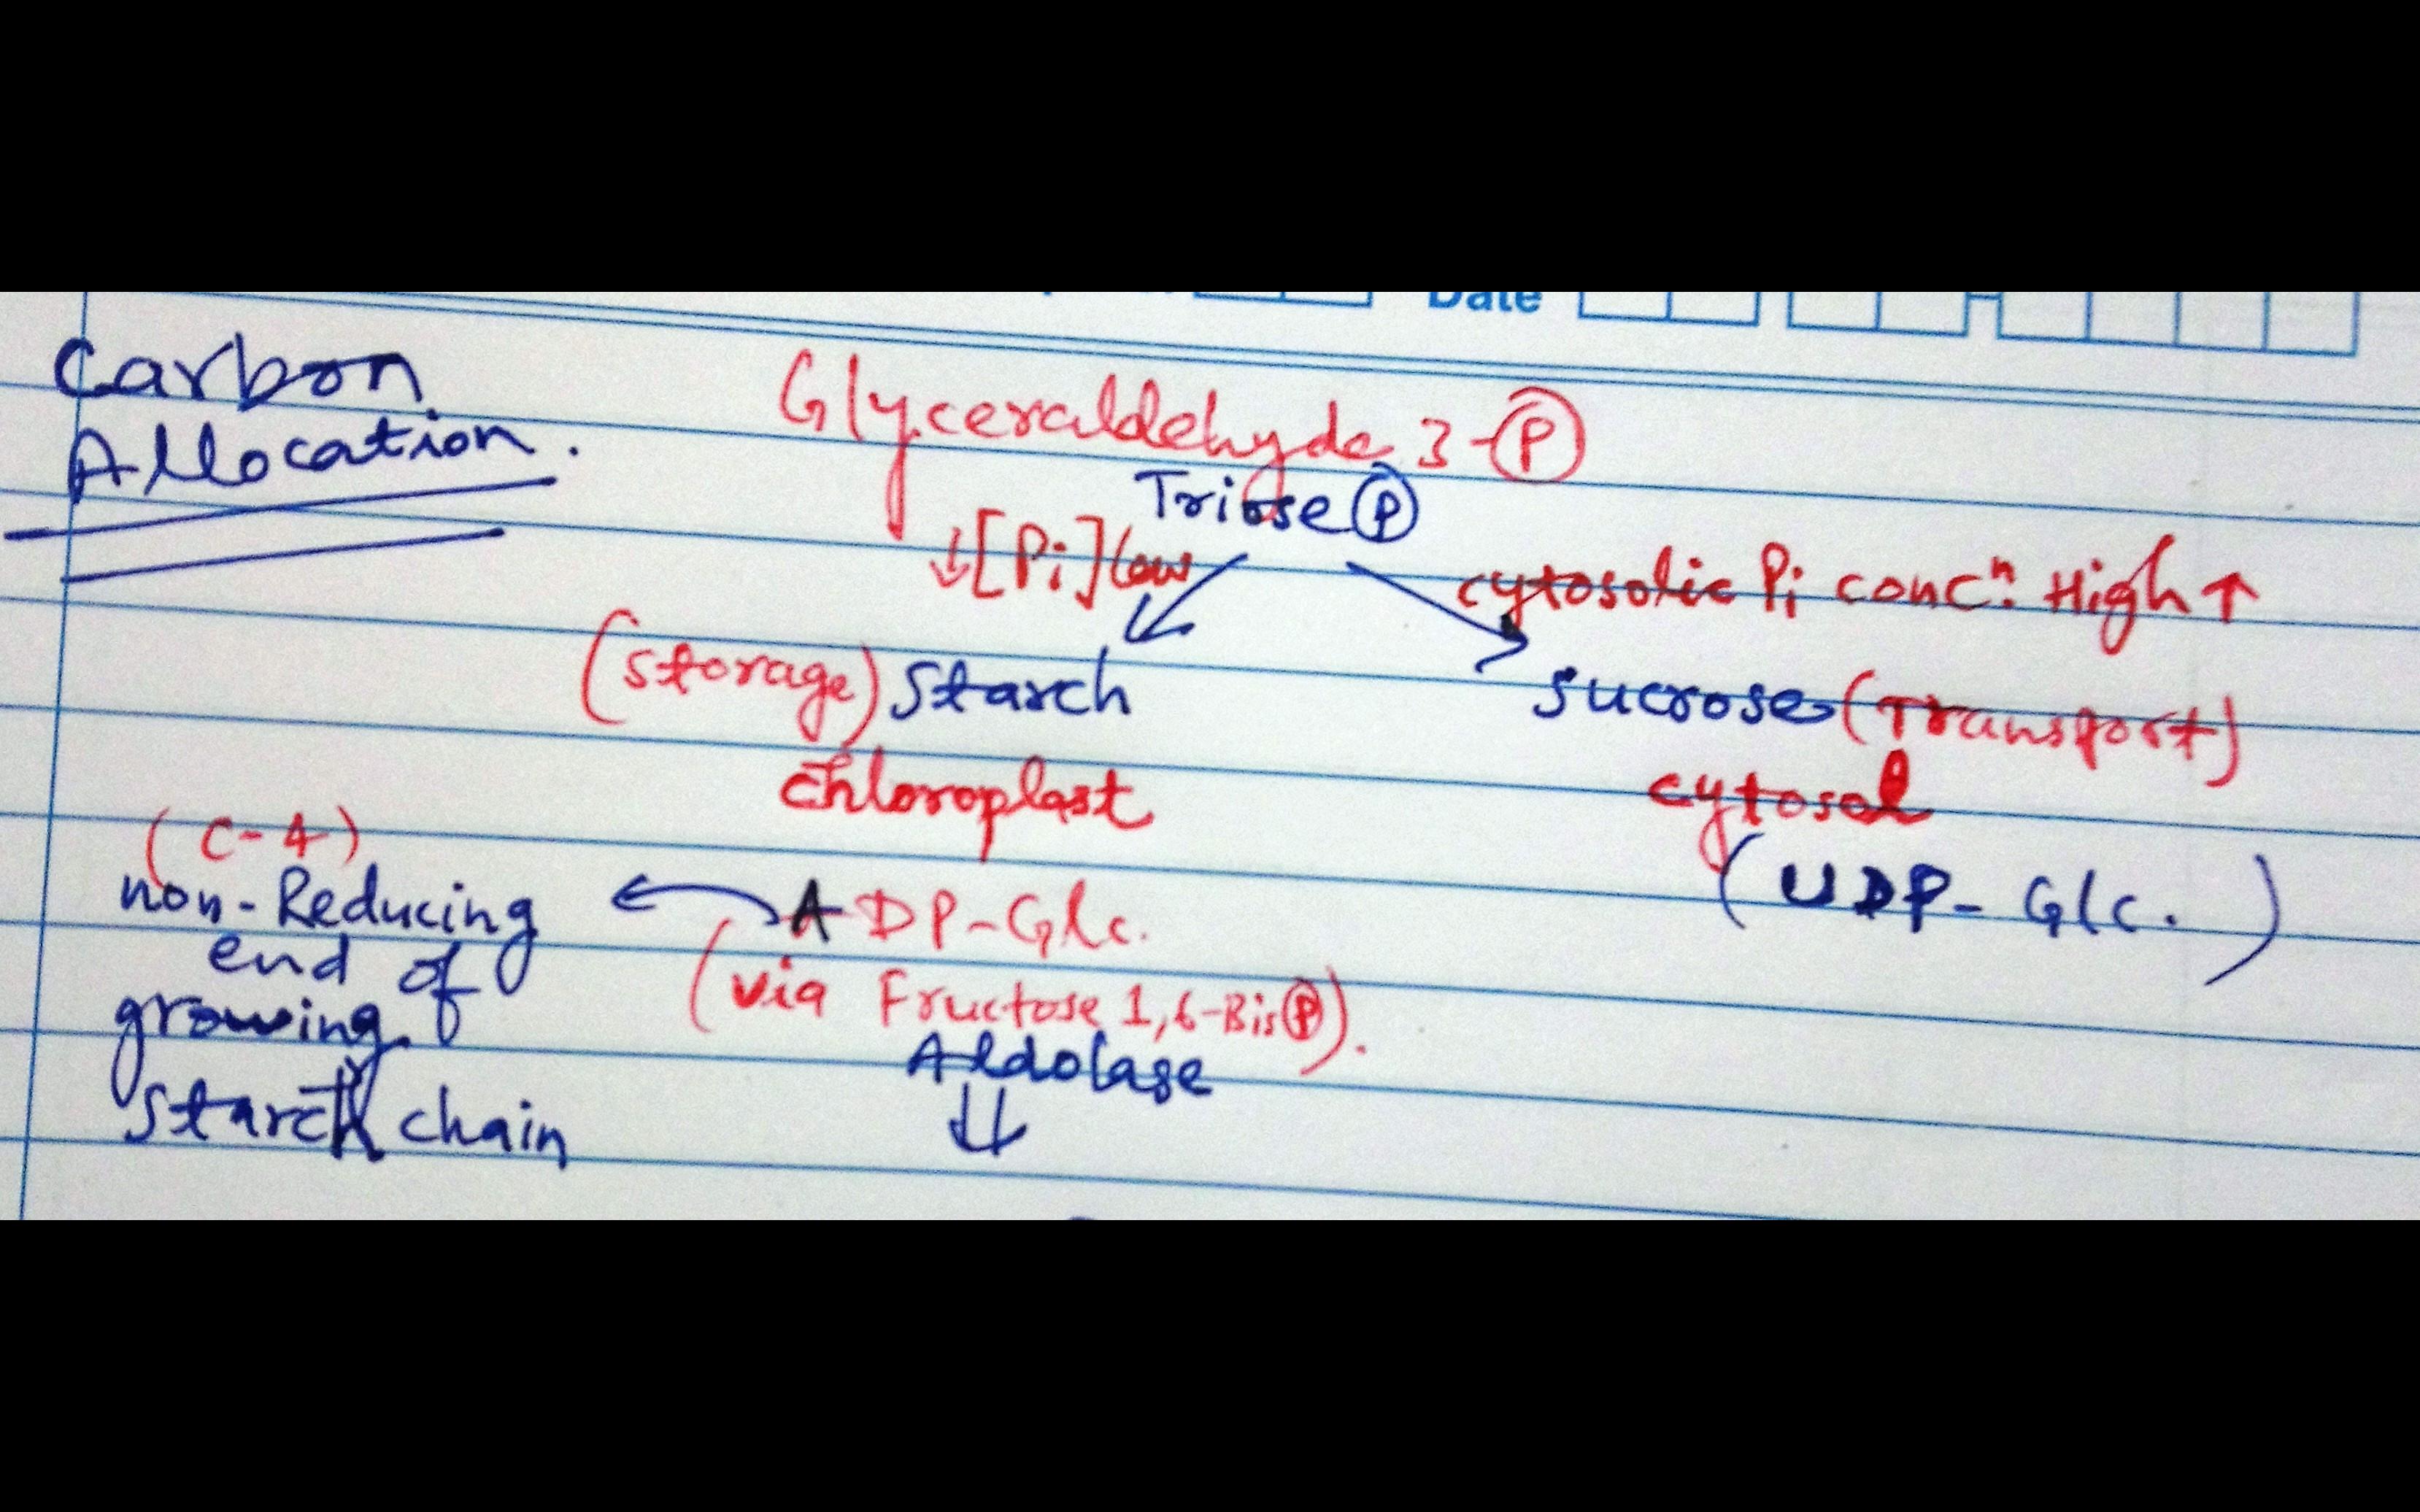 Date
Carbon
Allocation.
Glyceraldehyde 3-Ⓟ
Triose Ⓟ
↓[Pi] low
cytosolic Pi concⁿ. High ↑
(storage) Starch
Sucrose (Transport)
chloroplast
cytosol
(C-4)
non-Reducing
end of
growing
starch chain
ADP-Glc.
(via Fructose 1,6-Bis Ⓟ).
Aldolase
(UDP-Glc.)